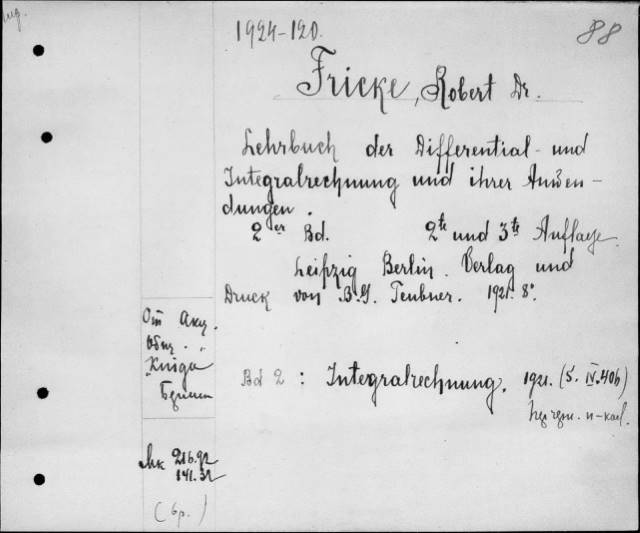 1924-120.
88
Fricke, Robert Dr.
Lehrbuch der Differential- und
Integralrechnung und ihrer Anwen-
dungen.
2er Bd. 2te und 3te Auflage.
Leipzig Berlin. Verlag und
Druck von B.G. Teubner. 1921. 8°.
От Акц.
Общ.
"Kniga
Берлин
Bd 2 : Integralrechnung. 1921. (5. IV. 406)
Мк 216.92
141.32
(бр.)